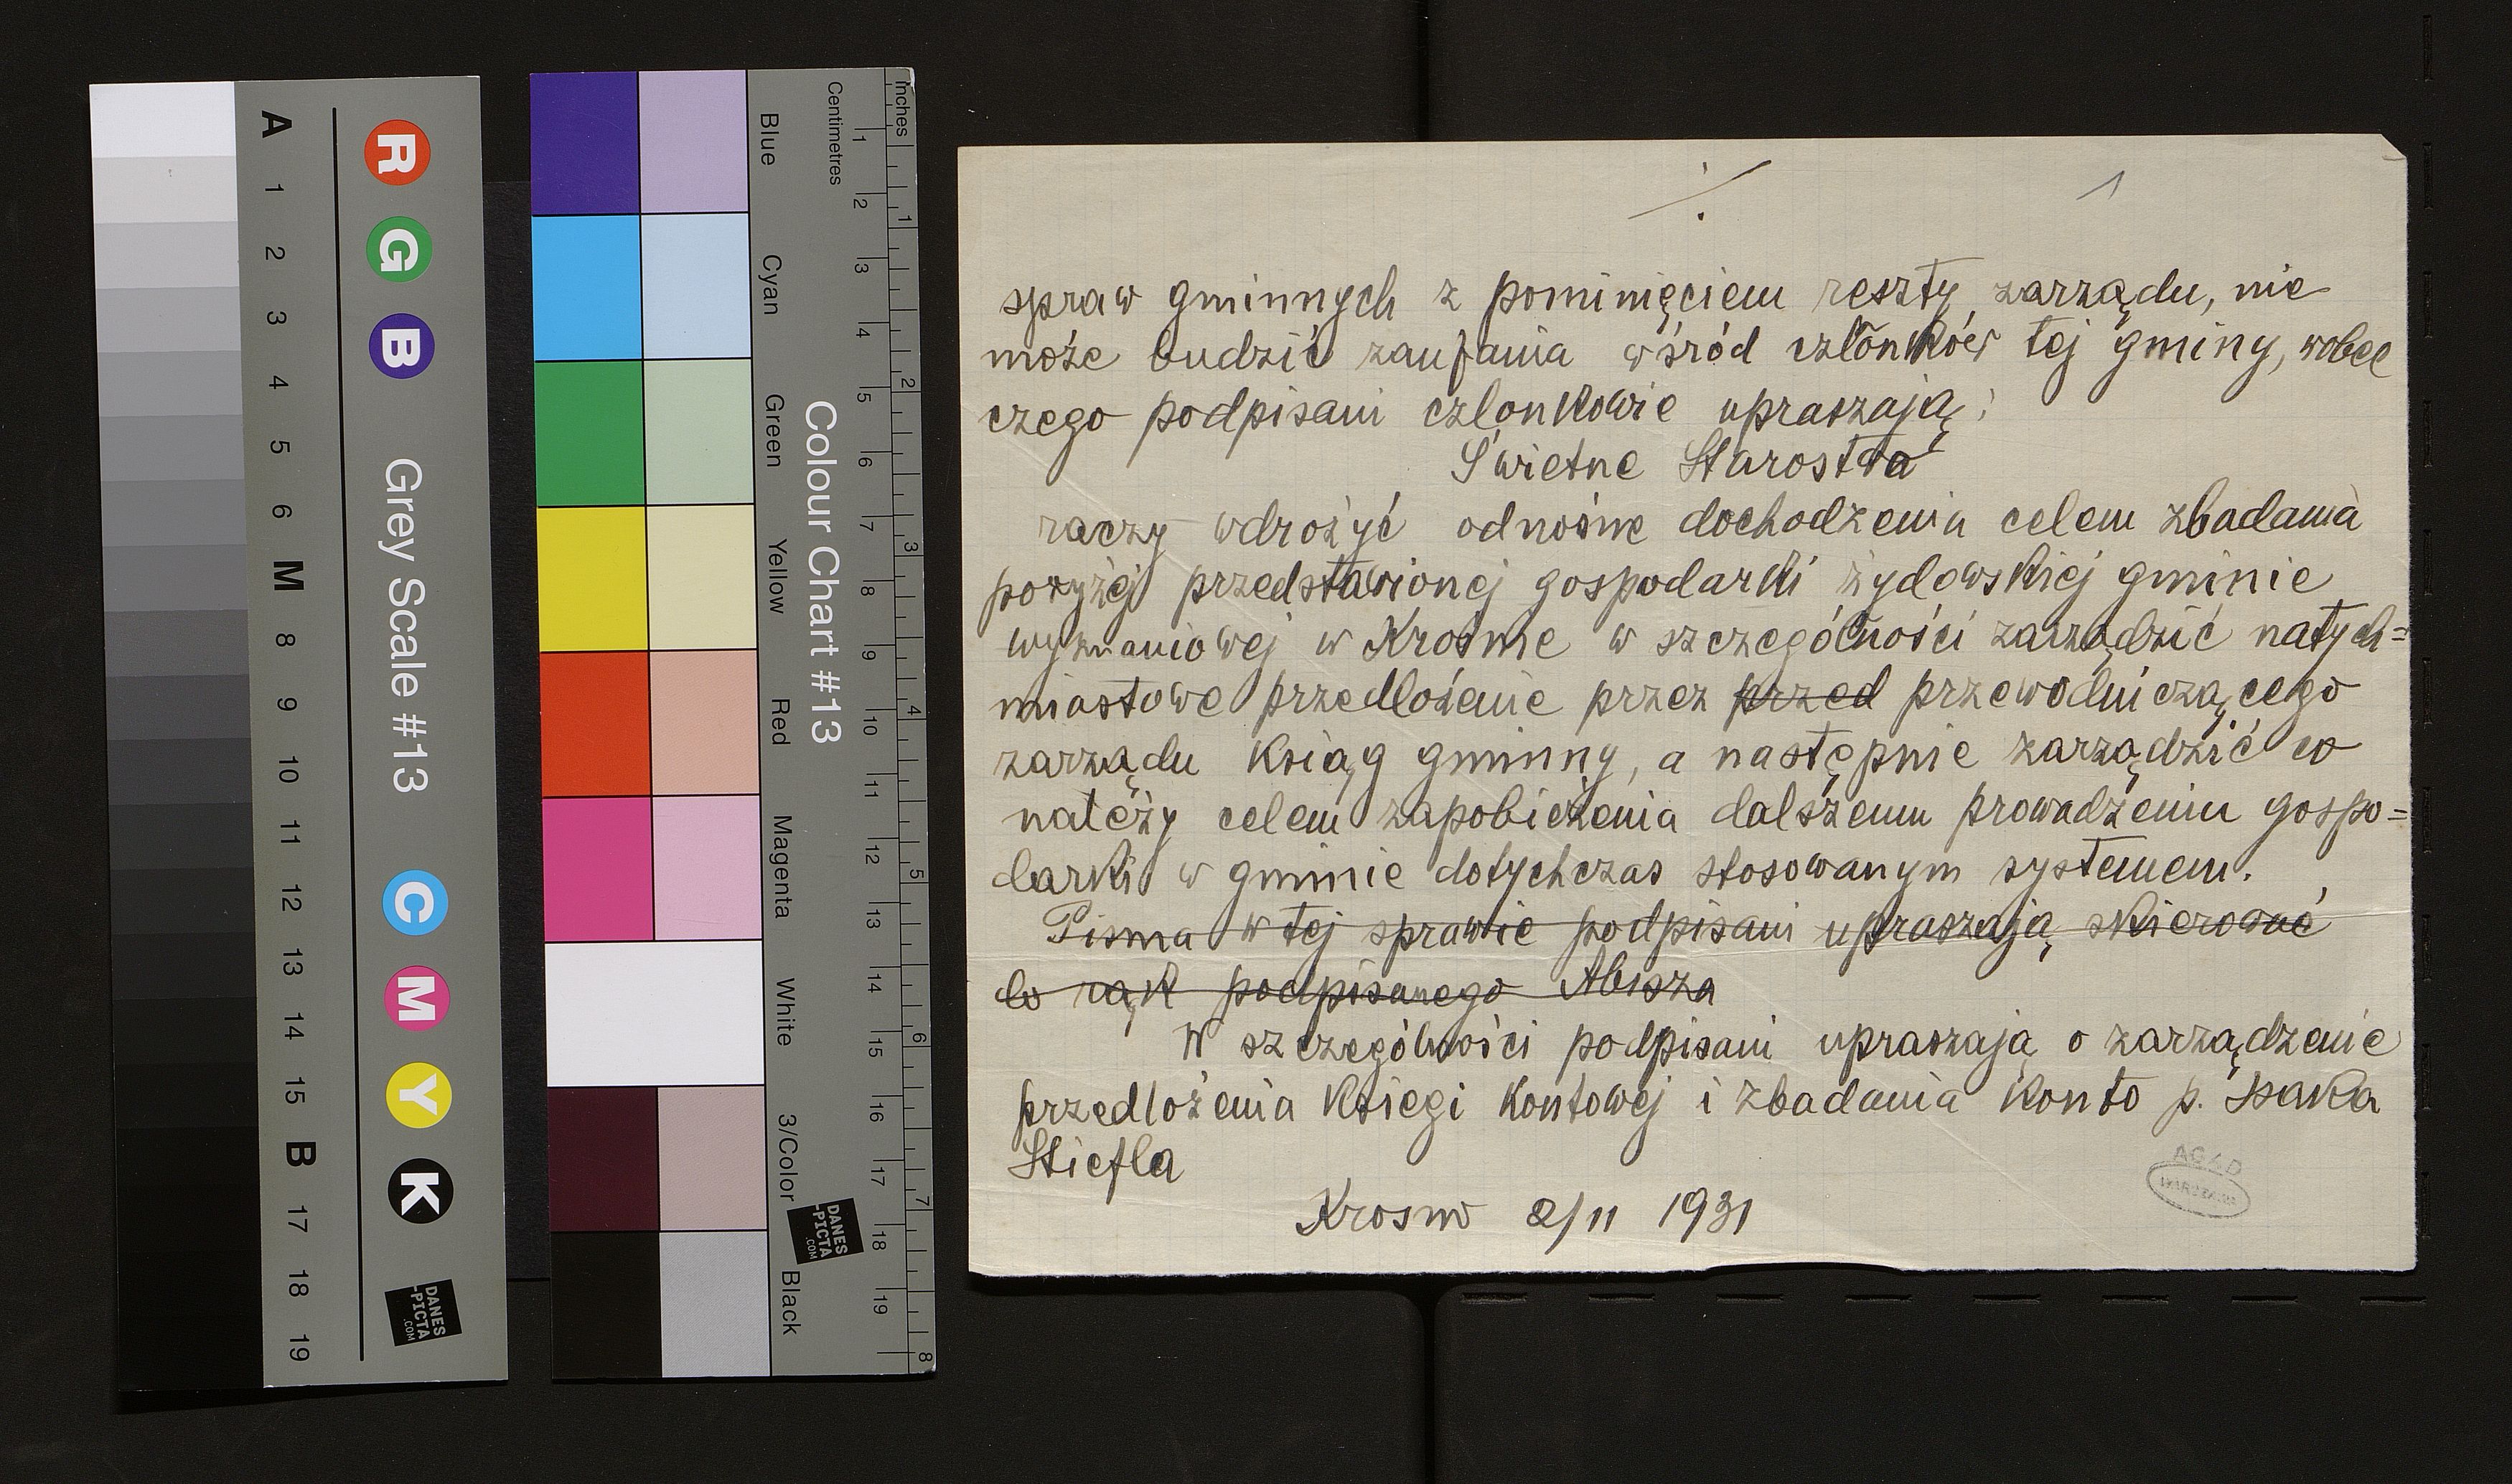 A
1
2
3
4
5
6
M
8
9
10
11
12
13
14
15
B
17
18
19
R G B Grey Scale #13 C M Y K
DANES
-PICTA
.COM
Blue
Cyan
Green
Yellow
Red
Magenta
White
3/Color
Black
Colour Chart #13
DANES
-PICTA
.COM
Centimetres
1 2 3 4 5 6 7 8 9 10 11 12 13 14 15 16 17 18 19
Inches
1 2 3 4 5 6 7 8
./. 1
spraw gminnych z pominięciem reszty zarządu, nie
może budzić zaufania wśród członków tej gminy, wobec
czego podpisani członkowie upraszają:
Świetne Starostwo
raczy wdrożyć odnośne dochodzenia celem zbadania
powyżej przedstawionej gospodarki żydowskiej gminie
wyznaniowej w Krośnie w szczególności zarządzić natych=
miastowe przedłożenie przez przed przewodniczącego
zarządu ksiąg gminny, a następnie zarządzić co
należy celem zapobieżenia dalszemu prowadzeniu gospo=
darki w gminie dotychczas stosowanym systemem.
Pisma w tej sprawie podpisani upraszają skierować
do rąk podpisanego Abisza
W szczególności podpisani upraszają o zarządzenie
przedłożenia Księgi kontowej i zbadania konto p. Isaka
Stiefla
Krosno 2/11 1931
AGAD